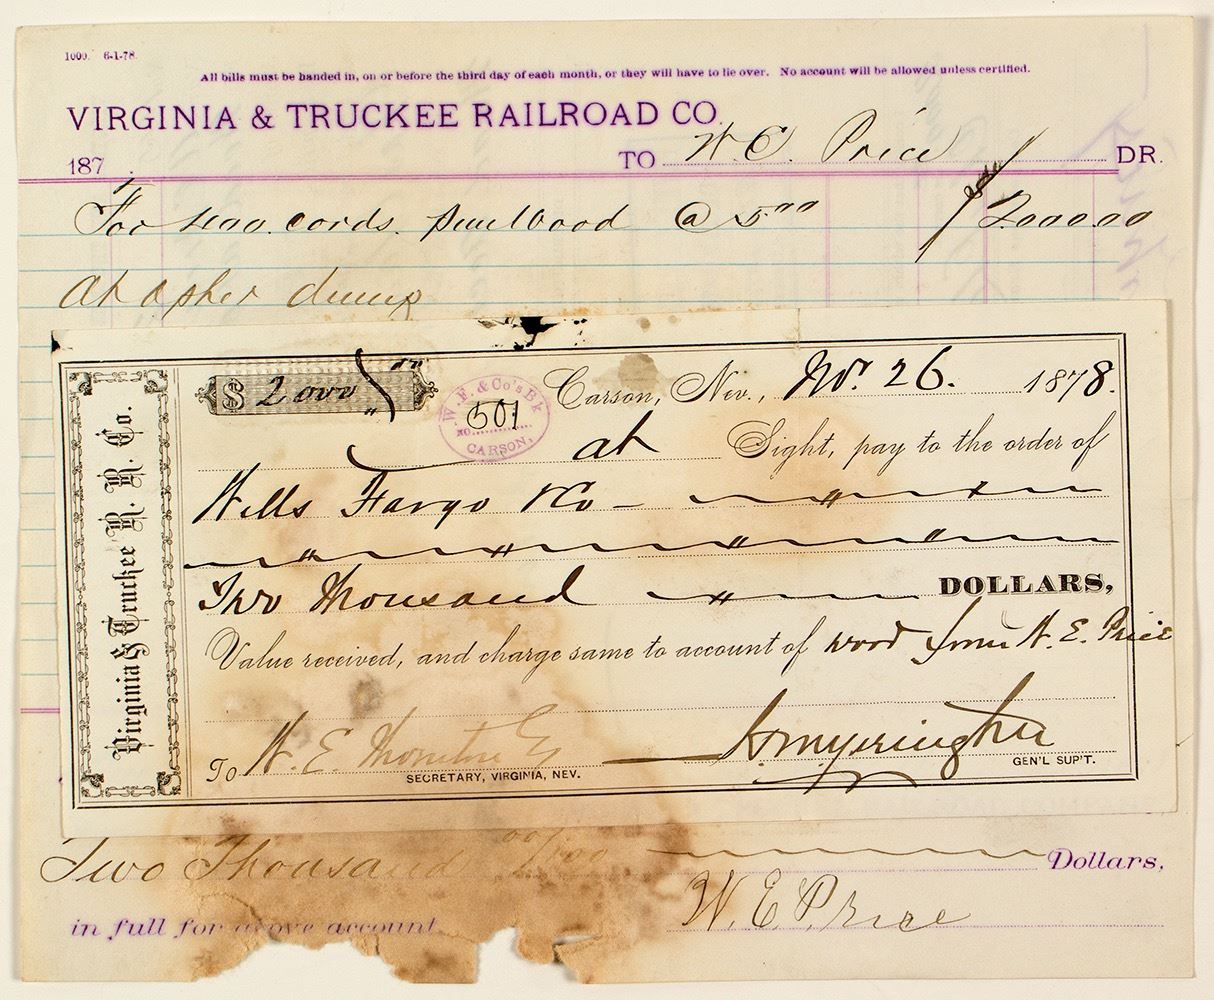 1000. 6-1-78.
All bills must be handed in, on or before the third day of each month, or they will have to lie over. No account will be allowed unless certified.
VIRGINIA & TRUCKEE RAILROAD CO.
187 . TO W. E. Price DR.
For 400 cords @ 5.00 $2000.00
At dump
Virginia & Truckee R. R. Co.
$ 2000
W. F. & Co's Bk
No. 601
CARSON,
Carson, Nev., Nov. 26. 1878.
at Sight, pay to the order of
Wells Fargo & Co
Two Thousand DOLLARS,
Value received, and charge same to account of wood from W. E. Price
To W. E.
SECRETARY, VIRGINIA, NEV.
H M Yerington
GEN'L SUP'T.
Two Thousand 00/100 Dollars.
in full for above account
W. E. Price